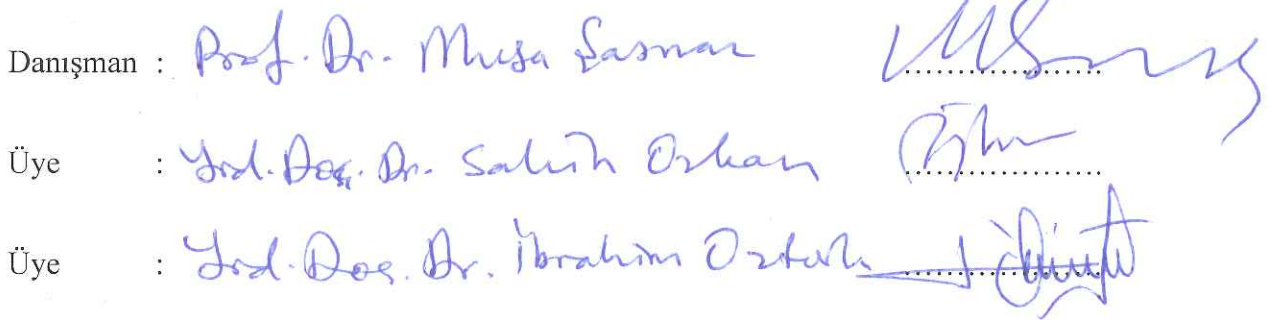 Danışman : Prof. Dr. Musa Şaşmaz ....................
Üye : Yrd. Doç. Dr. Salih Özkan ....................
Üye : Yrd. Doç. Dr. İbrahim Öztürk ....................